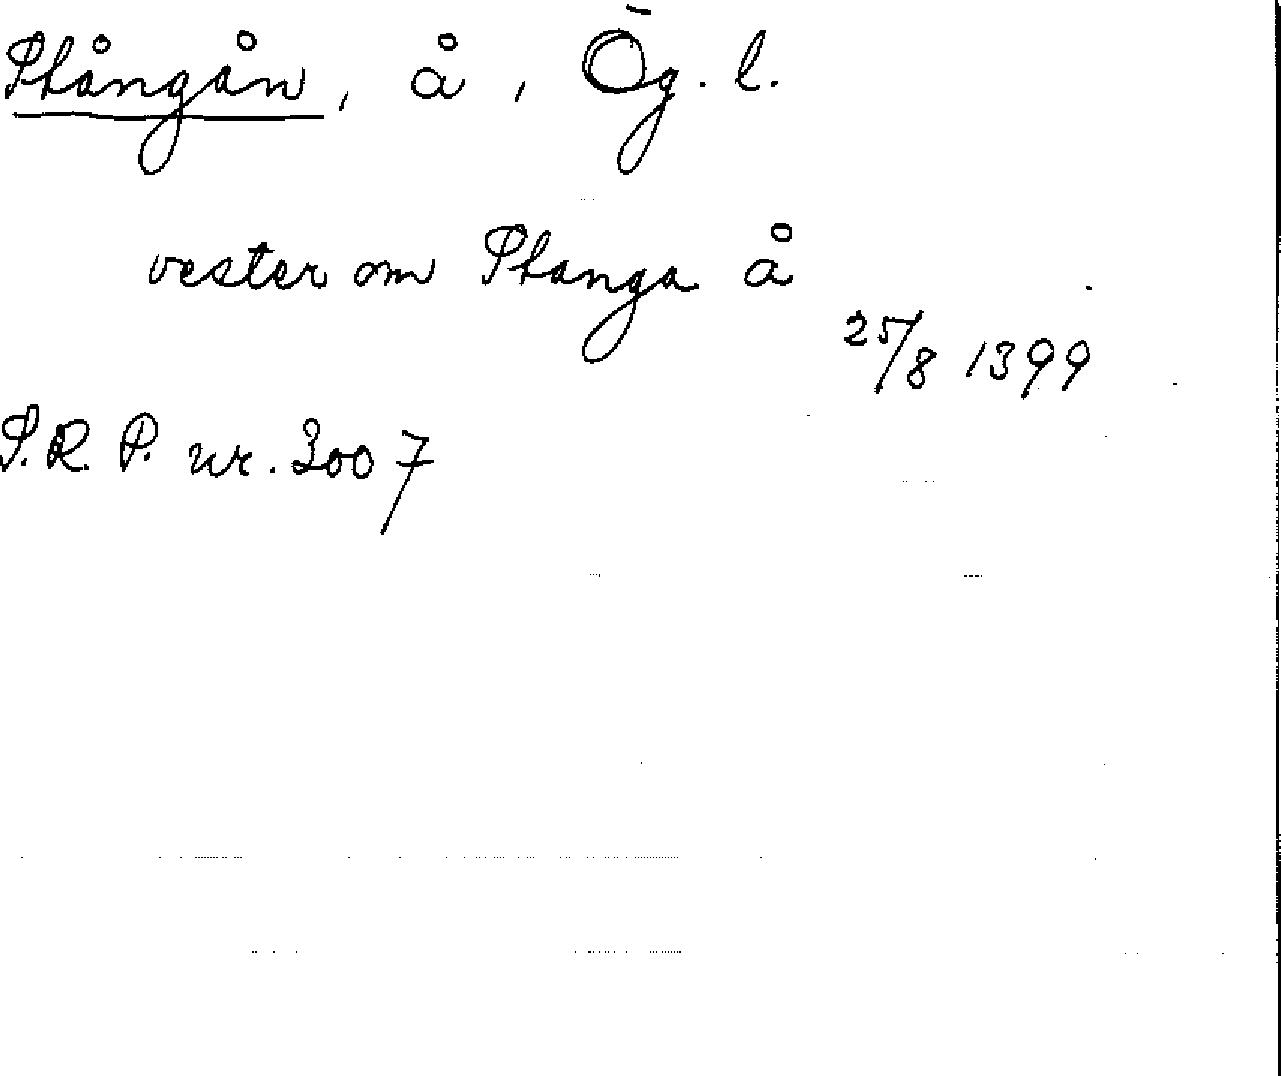 Stångån, å, Ög. l.
vester om Stanga å
25/8 1399
S.R.P. nr. 3007